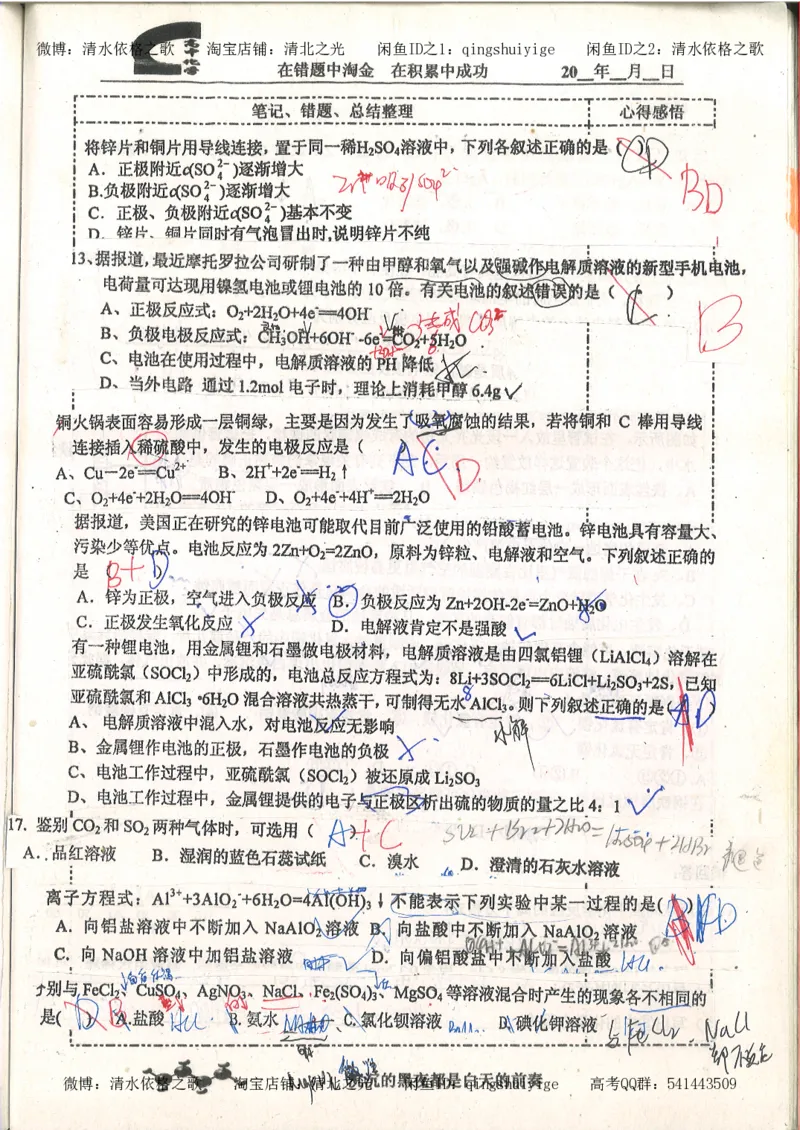 微博：清水依格之歌 淘宝店铺：清北之光 闲鱼ID之1：qingshuiyige 闲鱼ID之2：清水依格之歌
在错题中淘金 在积累中成功 20__年__月__日
笔记、错题、总结整理 心得感悟
将锌片和铜片用导线连接，置于同一稀H₂SO₄溶液中，下列各叙述正确的是（ D ）
A．正极附近c(SO₄²⁻)逐渐增大
B.负极附近c(SO₄²⁻)逐渐增大
BD
C．正极、负极附近c(SO₄²⁻)基本不变
D．锌片、铜片同时有气泡冒出时,说明锌片不纯
13、据报道，最近摩托罗拉公司研制了一种由甲醇和氧气以及强碱作电解质溶液的新型手机电池，
电荷量可达现用镍氢电池或锂电池的 10 倍。有关电池的叙述错误的是（ C ）
A、正极反应式：O₂+2H₂O+4e⁻══4OH⁻
B
B、负极电极反应式：CH₃OH+6OH⁻ -6e⁻═CO₂+5H₂O
C、电池在使用过程中，电解质溶液的 PH 降低
D、当外电路 通过 1.2mol 电子时，理论上消耗甲醇 6.4g
铜火锅表面容易形成一层铜绿，主要是因为发生了吸氧腐蚀的结果，若将铜和 C 棒用导线
连接插入稀硫酸中，发生的电极反应是（ AC
D
A、Cu－2e⁻═Cu²⁺ B、2H⁺+2e⁻══H₂↑
C、O₂+4e⁻+2H₂O══4OH⁻ D、O₂+4e⁻+4H⁺══2H₂O
据报道，美国正在研究的锌电池可能取代目前广泛使用的铅酸蓄电池。锌电池具有容量大、
污染少等优点。电池反应为 2Zn+O₂=2ZnO，原料为锌粒、电解液和空气。下列叙述正确的
是（ B+D
A．锌为正极，空气进入负极反应 B．负极反应为 Zn+2OH-2e⁻=ZnO+H₂O
C．正极发生氧化反应 D．电解液肯定不是强酸
有一种锂电池，用金属锂和石墨做电极材料，电解质溶液是由四氯铝锂（LiAlCl₄）溶解在
亚硫酰氯（SOCl₂）中形成的，电池总反应方程式为：8Li+3SOCl₂══6LiCl+Li₂SO₃+2S，已知
亚硫酰氯和 AlCl₃ •6H₂O 混合溶液共热蒸干，可制得无水 AlCl₃。则下列叙述正确的是( AD )
A、 电解质溶液中混入水，对电池反应无影响
水解
B、金属锂作电池的正极，石墨作电池的负极
C、电池工作过程中，亚硫酰氯（SOCl₂）被还原成 Li₂SO₃
D、电池工作过程中，金属锂提供的电子与正极区析出硫的物质的量之比 4：1
17. 鉴别 CO₂ 和 SO₂ 两种气体时，可选用（ A+C
A．品红溶液 B．湿润的蓝色石蕊试纸 C．溴水 D．澄清的石灰水溶液
离子方程式：Al³⁺+3AlO₂⁻+6H₂O=4Al(OH)₃↓不能表示下列实验中某一过程的是( )
A．向铝盐溶液中不断加入 NaAlO₂溶液 B、向盐酸中不断加入 NaAlO₂ 溶液
C．向 NaOH 溶液中加铝盐溶液 D．向偏铝酸盐中不断加入盐酸
别与 FeCl₂、CuSO₄、AgNO₃、NaCl、Fe₂(SO₄)₃、MgSO₄ 等溶液混合时产生的现象各不相同的
是( D B A.盐酸 HCl B. 氨水 C. 氯化钡溶液 D. 碘化钾溶液
与FeCl₂、NaCl
微博：清水依格之歌 淘宝店铺：清北之光 闲鱼ID：qingshuiyige 高考QQ群：541443509
沉的黑夜都是白天的前奏